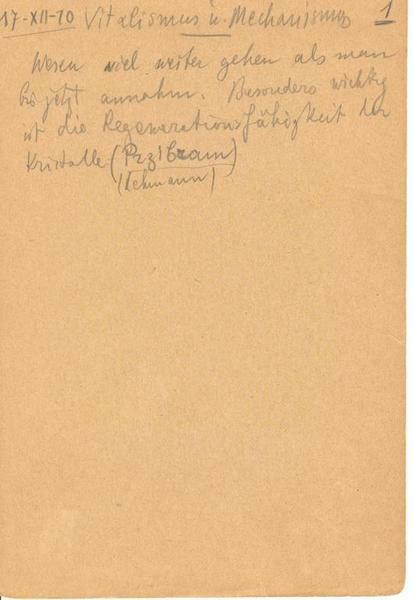 17-XII-70 Vitalismus u. Mechanismus 1
Wesen viel weiter gehen als man
bis jetzt annahm. Besonders wichtig
ist die Regenerationsfähigkeit der
Kristalle (Przibram)
(Lehmann)